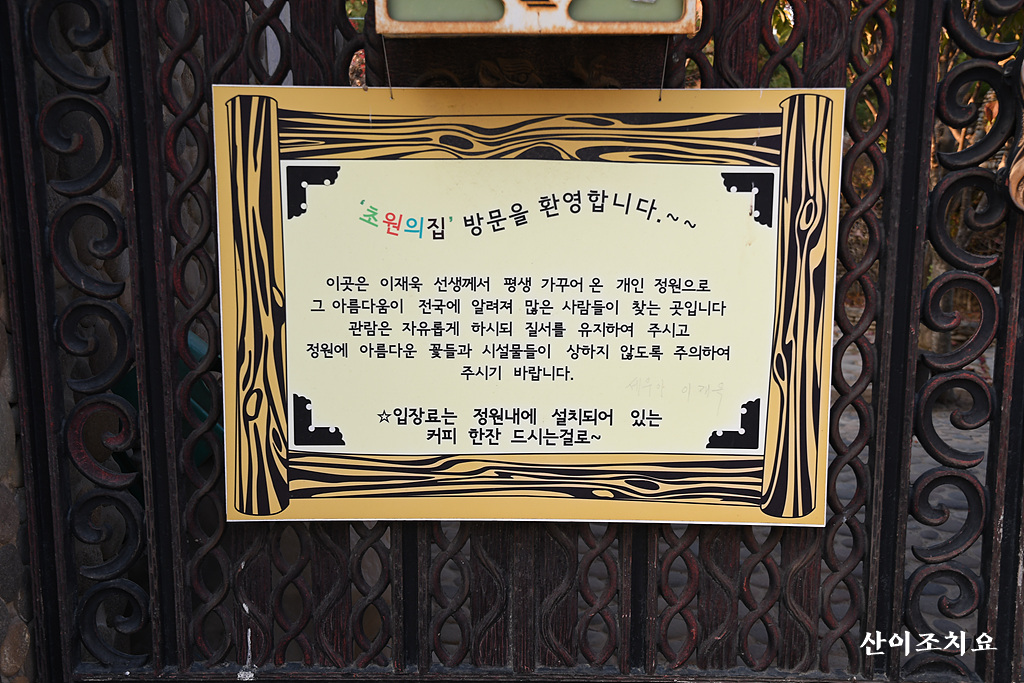 '초원의집' 방문을 환영합니다.~~
이곳은 이재욱 선생께서 평생 가꾸어 온 개인 정원으로
그 아름다움이 전국에 알려져 많은 사람들이 찾는 곳입니다
관람은 자유롭게 하시되 질서를 유지하여 주시고
정원에 아름다운 꽃들과 시설물들이 상하지 않도록 주의하여
주시기 바랍니다.
이재욱
☆입장료는 정원내에 설치되어 있는
커피 한잔 드시는걸로~
산이조치요